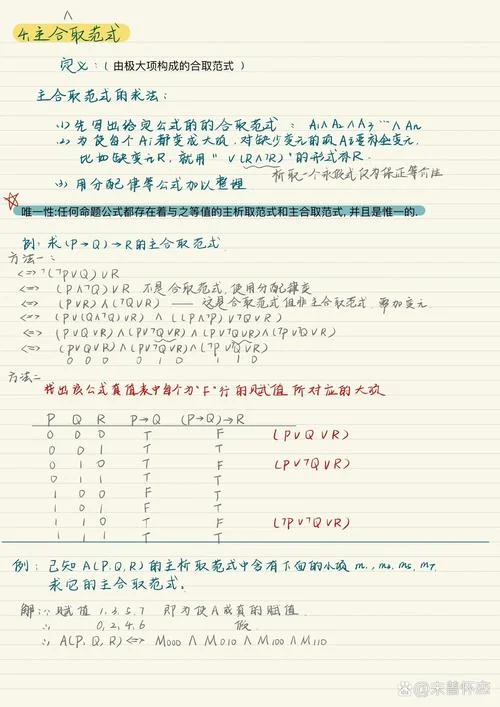 ∧
4.主合取范式
定义：(由极大项构成的合取范式)
主合取范式的求法：
(1) 先写出给定公式的的合取范式：A₁∧A₂∧A₃…∧Aₙ
(2) 为使每个Ai都变成大项，对缺少变元的项A主要补全变元，
比如缺变元R，就用"∨(R∧¬R)"的形式补R.
析取一个永假式仅为保证等价性
(3) 用分配律等公式加以整理
唯一性:任何命题公式都存在着与之等值的主析取范式和主合取范式,并且是惟一的.
例：求(P→Q)→R的主合取范式
方法一：
<=> ¬(¬P∨Q)∨R
<=> (P∧¬Q)∨R 不是合取范式,使用分配律变
<=> (P∨R)∧(¬Q∨R) —— 这是合取范式但非主合取范式,需加变元
<=> (P∨(Q∧¬Q)∨R) ∧ ((P∧¬P)∨¬Q∨R)
<=> (P∨Q∨R)∧(P∨¬Q∨R)∧(P∨¬Q∨R)∧(¬P∨¬Q∨R)
<=> (P∨Q∨R)∧(P∨¬Q∨R)∧(¬P∨¬Q∨R)
0 0 0 0 1 0 1 1 0
方法二
找出该公式真值表中每个为"F"行的赋值所对应的大项
P Q R P→Q (P→Q)→R
0 0 0 T F (P∨Q∨R)
0 0 1 T T
0 1 0 T F (P∨¬Q∨R)
0 1 1 T T
1 0 0 F T
1 0 1 F T
1 1 0 T F (¬P∨¬Q∨R)
1 1 1 T T
例：已知A(P,Q,R)的主析取范式中含有下面的小项m₁,m₃,m₅,m₇.
求它的主合取范式.
解：∵ 赋值 1,3,5,7 即为使A为真的赋值
∴ 0,2,4,6 假.
∴ A(P,Q,R)<=> M₀₀₀∧M₀₁₀∧M₁₀₀∧M₁₁₀